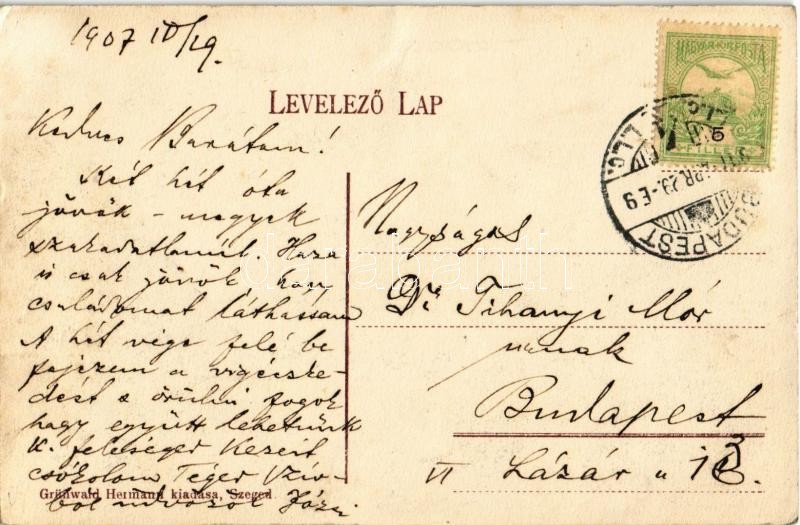 1907 IV/29.
LEVELEZŐ LAP
MAGYAR KIR. POSTA
5
FILLÉR
BUDAPEST
APR. 29.-E 9
Kedves Barátom!
Két hét óta
jövök - megyek
szakadatlanul. Haza
is csak jövök, hogy
családomat láthassam
A hét vége felé be
fejezem a vigécske-
dést s örülni fogok
hogy együtt lehetünk
K. feleséged kezeit
csókolom Téged szív-
ből üdvözöl Józsi
Nagyságos
Dr. Tihanyi Mór
urnak
Budapest
VI Lázár u 13
Grünwald Hermann kiadása, Szeged
darabanth